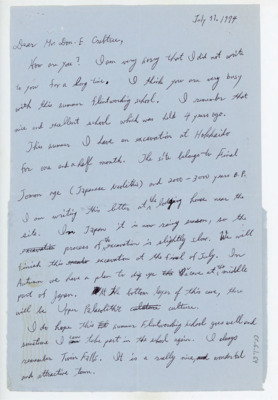 July 22, 1974
Dear Mr. Don. E. Crabtree,
How are you? I am very sorry that I did not write
to you for a long time. I think you are very busy
with this summer Flintworking school. I remember that
nice and excellent school which was held 4 years ago.
This summer I have an excavation at Hokkaido
for one and a half month. The site belongs to Final
Jomon age (Japanese neolithic) and 2000 - 3000 years B.P.
I am writing this letter at the lodging house near the
site. In Japan it is now rainy season, so the
process of the excavation is slightly slow. We will
finish this excavation at the end of July. In
Autumn we have a plan to dig up the cave at the middle
part of Japan. At the bottom layer of this cave, there
will be Upper Paleolithic culture.
I do hope this summer Flintworking school goes well and
sometime I take part in the school again. I always
remember Twin Falls. It is a really nice, and wonderful
and attractive town.